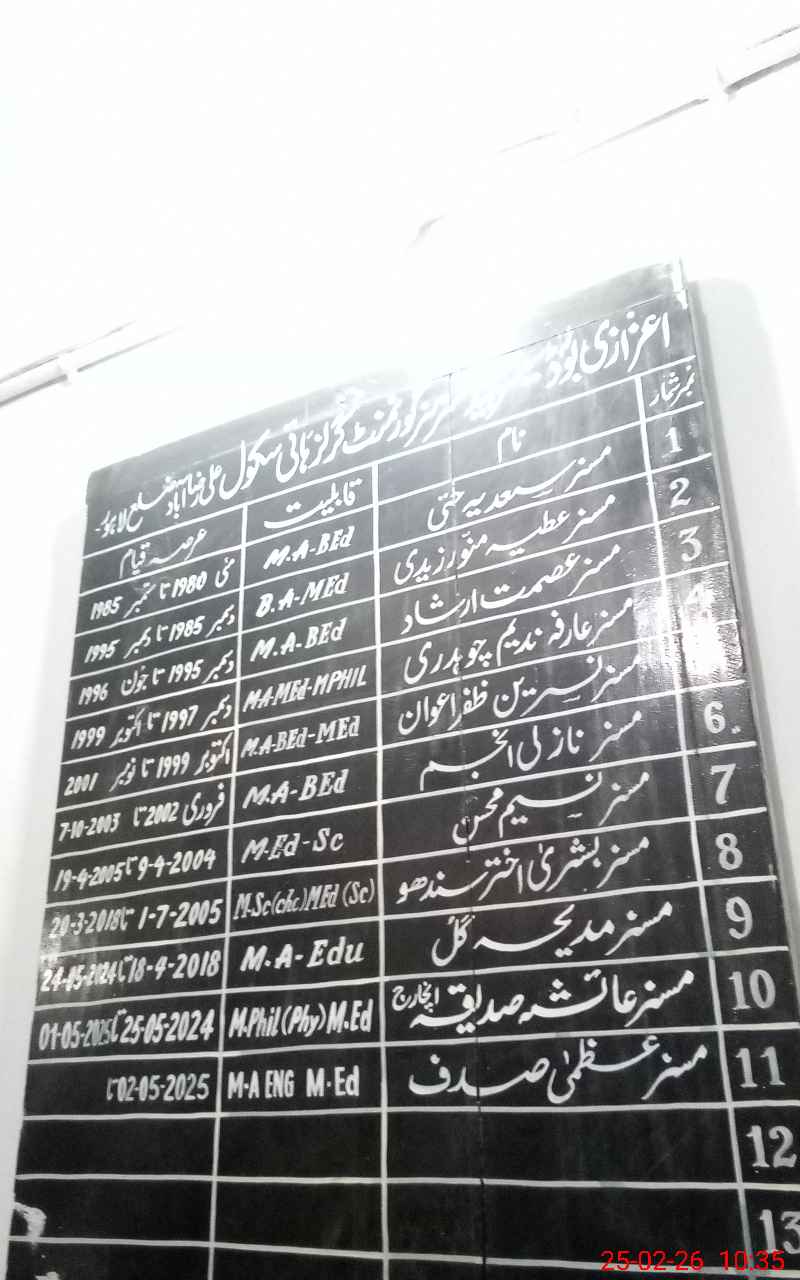 اعزازی بورڈ
گورنمنٹ گرلز ہائی سکول علی رضا آباد ضلع لاہور
نمبر شمار نام قابلیت عرصہ قیام
1 مسز سعدیہ حقی M.A-BEd مئی 1980 تا ستمبر 1985
2 مسز عطیہ منور زیدی B.A-MEd دسمبر 1985 تا دسمبر 1995
3 مسز عصمت ارشاد M.A-BEd دسمبر 1995 تا جون 1996
4 مسز عارفہ ندیم چوہدری M.A-MEd-MPHIL دسمبر 1997 تا اکتوبر 1999
مسز نسرین ظفر اعوان M.A-BEd-MEd اکتوبر 1999 تا نومبر 2001
6 مسز نازلی انجم M.A-BEd فروری 2002 تا 7-10-2003
7 مسز نسیم محسن M.Ed-Sc 9-4-2004 تا 19-4-2005
8 مسز بشریٰ اختر سندھو M-Sc(che)MEd(Sc) 1-7-2005 تا 20-3-2018
9 مسز مدیحہ گل M.A-Edu 18-4-2018 تا 24-05-2024
10 مسز عائشہ صدیقہ انچارج M.Phil(Phy)M.Ed 25-05-2024 تا 01-05-2025
11 مسز عظمیٰ صدف M-A ENG M-Ed 02-05-2025 تا
12
13
25-02-26 10:35